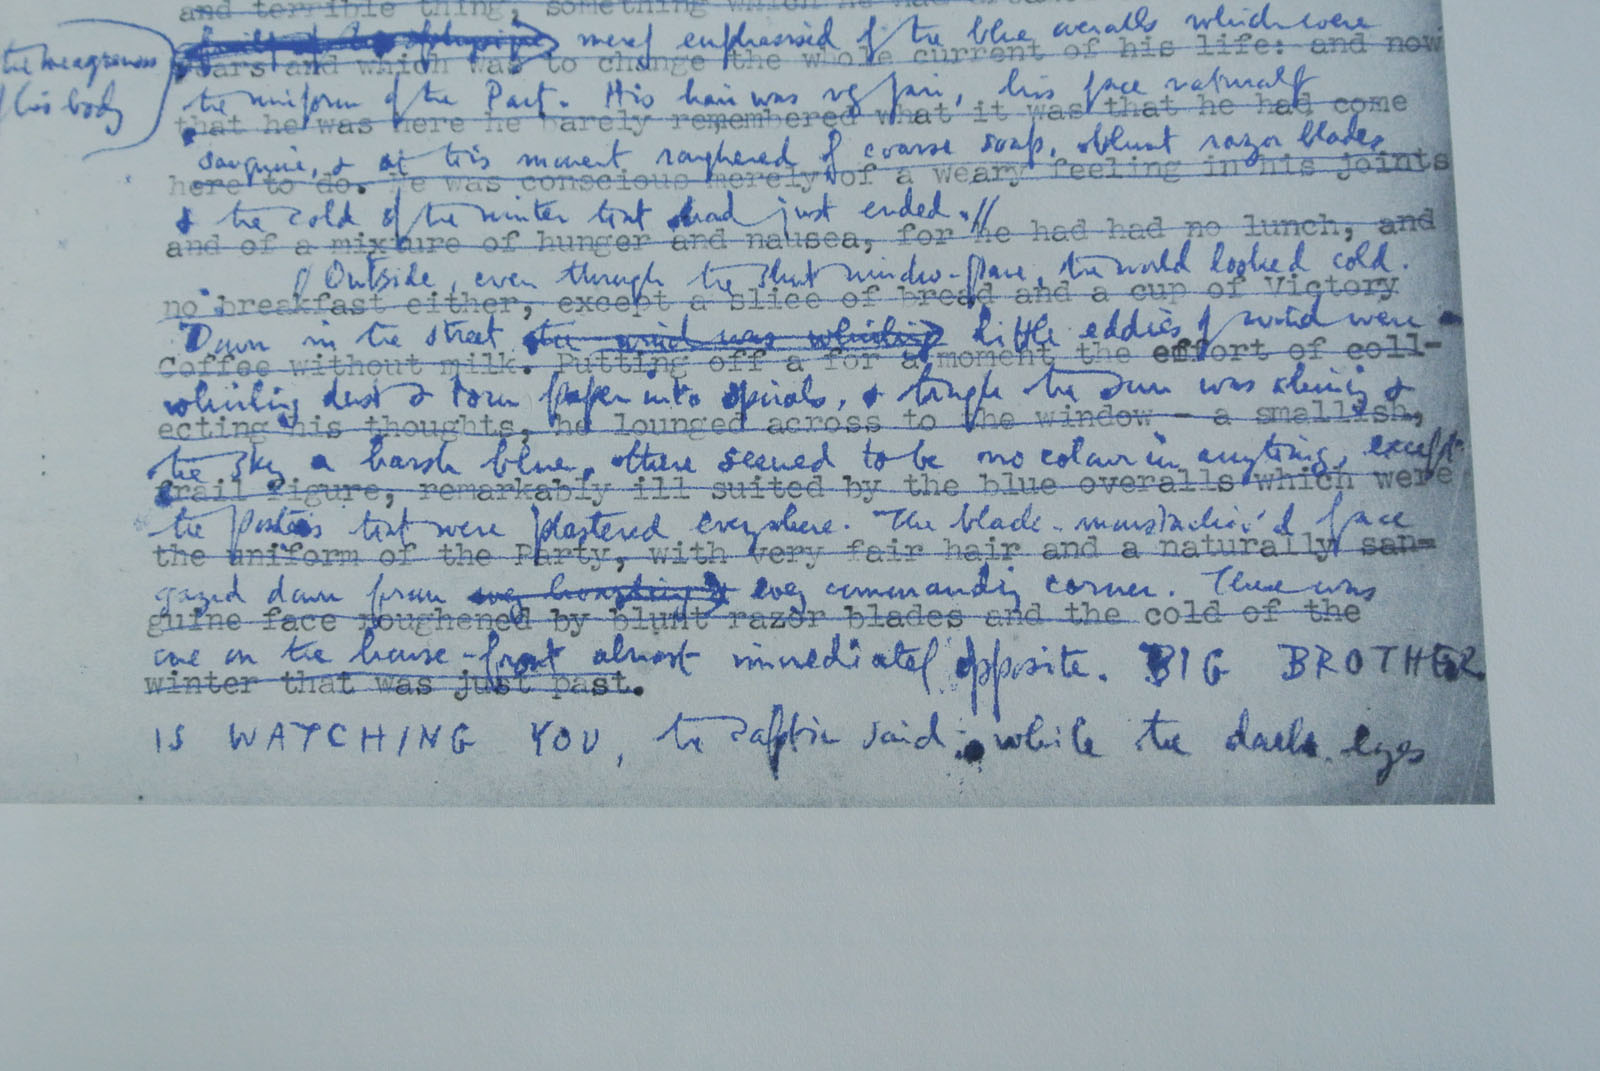 and terrible thing, something which he had
the meagreness
of his body
merely emphasised by the blue overalls which were
years and which was to change the whole current of his life: and now
the uniform of the Party. His hair was very fair, his face naturally
that he was here he barely remembered what it was that he had come
sanguine, & at this moment roughened by coarse soap, blunt razor blades
here to do. He was conscious merely of a weary feeling in his joints
& the cold of the winter that had just ended.//
and of a mixture of hunger and nausea, for he had had no lunch, and
Outside, even through the shut window-pane, the world looked cold.
no breakfast either, except a slice of bread and a cup of Victory
Down in the street the wind was whirling little eddies of wind were
Coffee without milk. Putting off a for a moment the effort of coll-
whirling dust & torn paper into spirals, & though the sun was shining &
ecting his thoughts, he lounged across to the window - a smallish,
the sky a harsh blue, there seemed to be no colour in anything, except
frail figure, remarkably ill suited by the blue overalls which were
the posters that were plastered everywhere. The black-moustachio'd face
the uniform of the Party, with very fair hair and a naturally san-
gazed down from every commanding corner. There was
guine face roughened by blunt razor blades and the cold of the
one on the house-front almost immediately opposite. BIG BROTHER
winter that was just past.
IS WATCHING YOU, the caption said, while the dark eyes